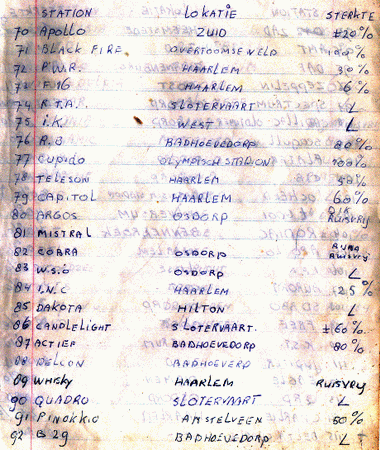 STATION LOKATIE STERKTE
70 Apollo ZUID ±20%
71 BLACK FIRE OVERTOOMSE VELD 100%
72 P.W.R. HAARLEM 30%
73 F16 HAARLEM 6%
74 R.T.A. SLOTERVAART L
75 I.K. WEST L
76 A.O BADHOEVEDORP 80%
77 Cupido OLYMPISCH STADION 100%
78 TELESON HAARLEM 50%
79 CAPITOL HAARLEM 60%
80 ARGOS OSDORP RUISVRIJ
81 MISTRAL
82 COBRA OSDORP RUISVRIJ
83 W.S.O OSDORP L
84 I.N.C HAARLEM 25%
85 DAKOTA HILTON L
86 CANDLELIGHT SLOTERVAART. ±60%
87 ACTIEF BADHOEVEDORP 80%
88 DELCON BADHOEVERP L
89 WHISKY HAARLEM RUISVRIJ
90 QUADRO SLOTERVAART L
91 PINOKKIO AMSTELVEEN 50%
92 B 29 BADHOEVEDORP L T